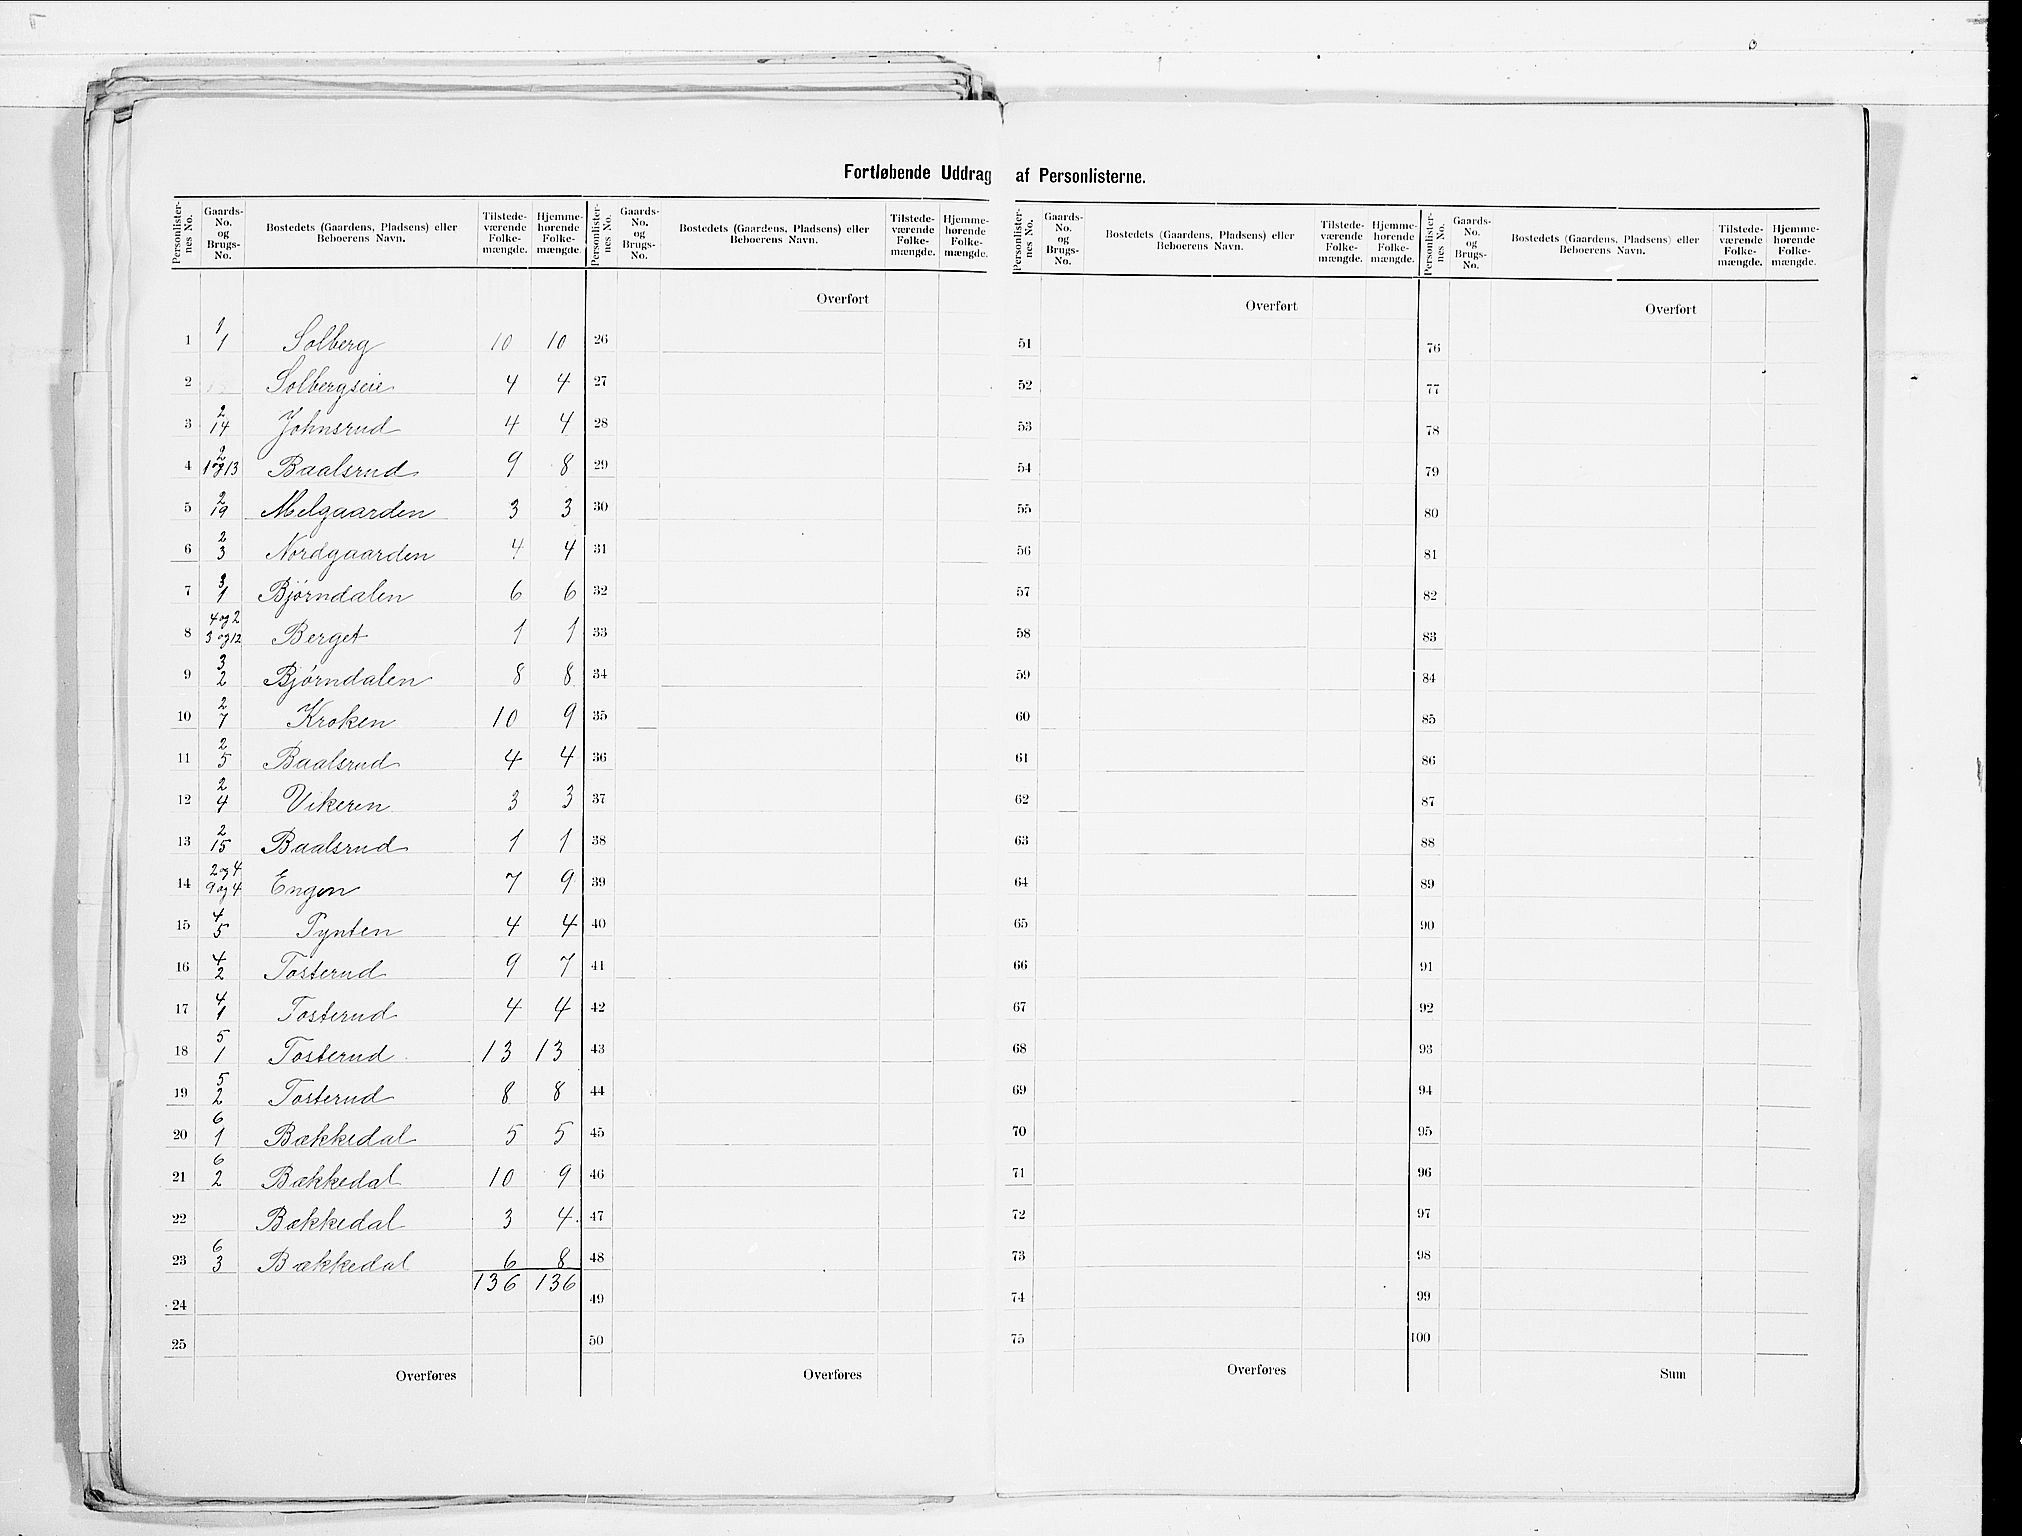 Fortløbende Uddrag af Personlisterne.
Personlister-nes No. | Gaards-No. og Brugs-No. | Bostedets (Gaardens, Pladsens) eller Beboerens Navn. | Tilstede-værende Folke-mængde. | Hjemme-hørende Folke-mængde.
1 | 1/1 | Solberg | 10 | 10
2 | Solbergseie | 4 | 4
3 | 2/14 | Johnsrud | 4 | 4
4 | 2/1 og 13 | Baalsrud | 9 | 8
5 | 2/19 | Melgaarden | 3 | 3
6 | 2/3 | Nordgaarden | 4 | 4
7 | 3/1 | Bjørndalen | 6 | 6
8 | 4 og 2/3 og 12 | Berget | 1 | 1
9 | 3/2 | Bjørndalen | 8 | 8
10 | 2/7 | Kroken | 10 | 9
11 | 2/5 | Baalsrud | 4 | 4
12 | 2/4 | Vikeren | 3 | 3
13 | 2/15 | Baalsrud | 1 | 1
14 | 2 og 4/9 og 4 | Engen | 7 | 9
15 | 4/5 | Pynten | 4 | 4
16 | 4/2 | Tosterud | 9 | 7
17 | 4/1 | Tosterud | 4 | 4
18 | 5/1 | Tosterud | 13 | 13
19 | 5/2 | Tosterud | 8 | 8
20 | 6/1 | Bækkedal | 5 | 5
21 | 6/2 | Bækkedal | 10 | 9
22 | Bækkedal | 3 | 4
23 | 6/3 | Bækkedal | 6 | 8
136 | 136
24
25
Overføres
Personlister-nes No. | Gaards-No. og Brugs-No. | Bostedets (Gaardens, Pladsens) eller Beboerens Navn. | Tilstede-værende Folke-mængde. | Hjemme-hørende Folke-mængde.
Overført
26
27
28
29
30
31
32
33
34
35
36
37
38
39
40
41
42
43
44
45
46
47
48
49
50
Overføres
Personlister-nes No. | Gaards-No. og Brugs-No. | Bostedets (Gaardens, Pladsens) eller Beboerens Navn. | Tilstede-værende Folke-mængde. | Hjemme-hørende Folke-mængde.
Overført
51
52
53
54
55
56
57
58
59
60
61
62
63
64
65
66
67
68
69
70
71
72
73
74
75
Overføres
Personlister-nes No. | Gaards-No. og Brugs-No. | Bostedets (Gaardens, Pladsens) eller Beboerens Navn. | Tilstede-værende Folke-mængde. | Hjemme-hørende Folke-mængde.
Overført
76
77
78
79
80
81
82
83
84
85
86
87
88
89
90
91
92
93
94
95
96
97
98
99
100
Sum